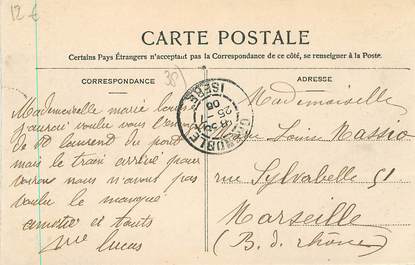 12 €
CARTE POSTALE
Certains Pays Étrangers n'acceptaut pas la Correspondance de ce côté, se renseigner à la Poste.
CORRESPONDANCE
38
ADRESSE
Mademoiselle marie louis
j'aurai voulu vous l'envoyer
de St laurent du pont
mais le train arrivé pour
voiron nous n'avons pas
voulu le manqué
amitié et touts
Mme lucas
GRENOBLE
25 - 7
08
ISÈRE
Mademoiselle
Louise Massio
rue Sylvabelle 51
Marseille
(B. d. rhône)